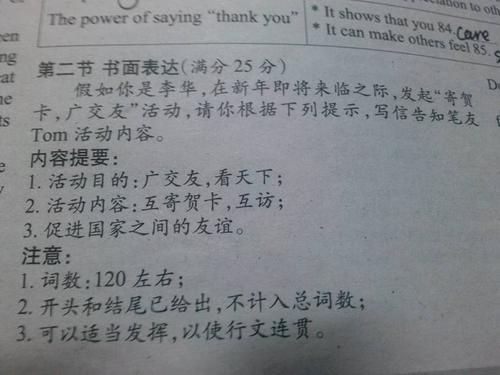 The power of saying “thank you”
* It shows that you 84. care
* It can make others feel 85.
第二节 书面表达(满分 25 分)
假如你是李华,在新年即将来临之际,发起“寄贺
卡,广交友”活动,请你根据下列提示,写信告知笔友
Tom 活动内容。
内容提要:
1. 活动目的:广交友,看天下;
2. 活动内容:互寄贺卡,互访;
3. 促进国家之间的友谊。
注意:
1. 词数:120 左右;
2. 开头和结尾已给出,不计入总词数;
3. 可以适当发挥,以使行文连贯。